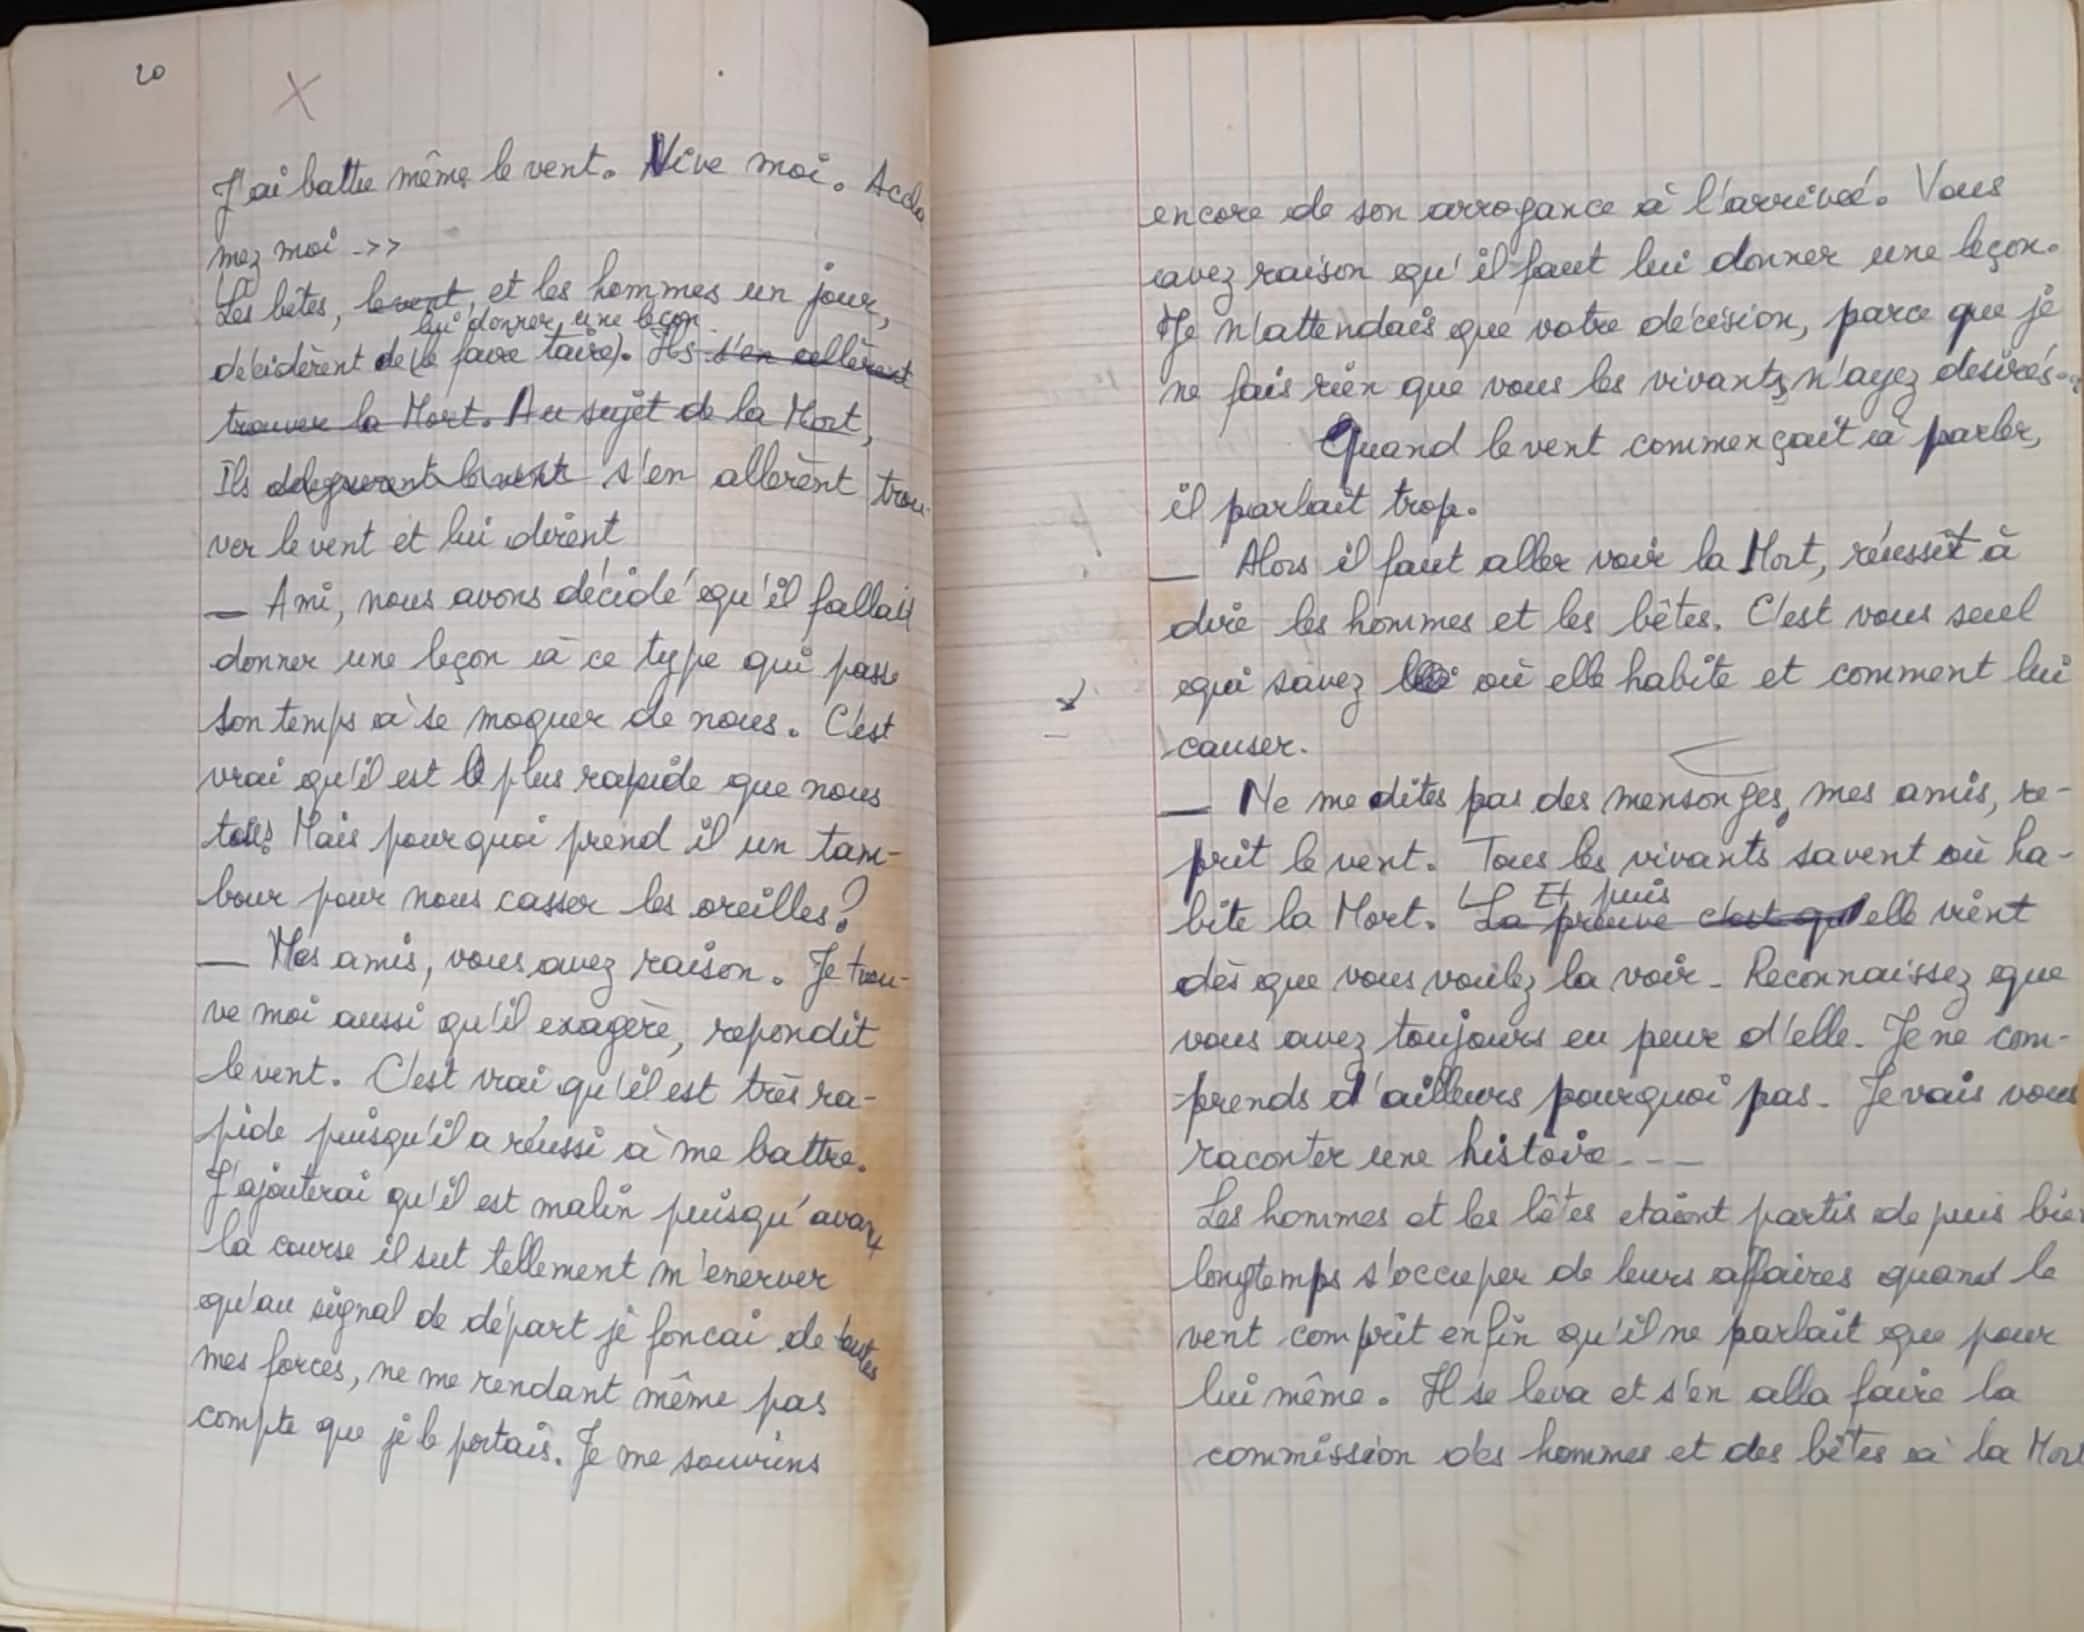 20
X
J'ai battu même le vent. Vive moi. Accla
mez moi ->>
Les bêtes, le vent, et les hommes un jour,
lui donner une leçon
décidèrent de (le faire taire). Ils s'en allèrent
trouver la Mort. Au sujet de la Mort,
Ils deleguerent le vent s'en allèrent trou-
ver le vent et lui dirent
— Ami, nous avons décidé qu'il fallait
donner une leçon à ce type qui passe
son temps à se moquer de nous. C'est
vrai qu'il est le plus rapide que nous
tous. Mais pourquoi prend il un tam-
bour pour nous casser les oreilles?
— Mes amis, vous avez raison. Je trou-
ve moi aussi qu'il exagère, repondit
le vent. C'est vrai qu'il est très ra-
pide puisqu'il a réussi à me battre.
J'ajouterai qu'il est malin puisqu'avant
la course il sut tellement m'enerver
qu'au signal de départ je foncai de toutes
mes forces, ne me rendant même pas
compte que je le portais. Je me souviens
encore de son arrogance à l'arrivée. Vous
avez raison qu'il faut lui donner une leçon.
Je n'attendais que votre décision, parce que je
ne fais rien que vous les vivants n'ayez desirés...
Quand le vent commençait à parler,
il parlait trop.
— Alors il faut aller voir la Mort, réussit à
dire les hommes et les bêtes. C'est vous seul
qui savez où elle habite et comment lui
causer.
— Ne me dites pas des mensonges, mes amis, re-
prit le vent. Tous les vivants savent où ha-
Et puis
bite la Mort. La preuve c'est qu'elle vient
dès que vous voulez la voir - Reconnaissez que
vous avez toujours eu peur d'elle. Je ne com-
-prends d'ailleurs pourquoi pas. Je vais vous
raconter une histoire ---
Les hommes et les bêtes etaient partis de puis bien
longtemps s'occuper de leurs affaires quand le
vent comprit enfin qu'il ne parlait que pour
lui même. Il se leva et s'en alla faire la
commission des hommes et des bêtes à la Mort